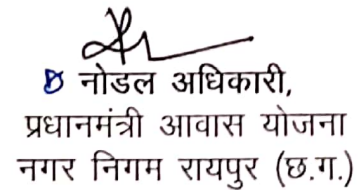 नोडल अधिकारी,
प्रधानमंत्री आवास योजना
नगर निगम रायपुर (छ.ग.)